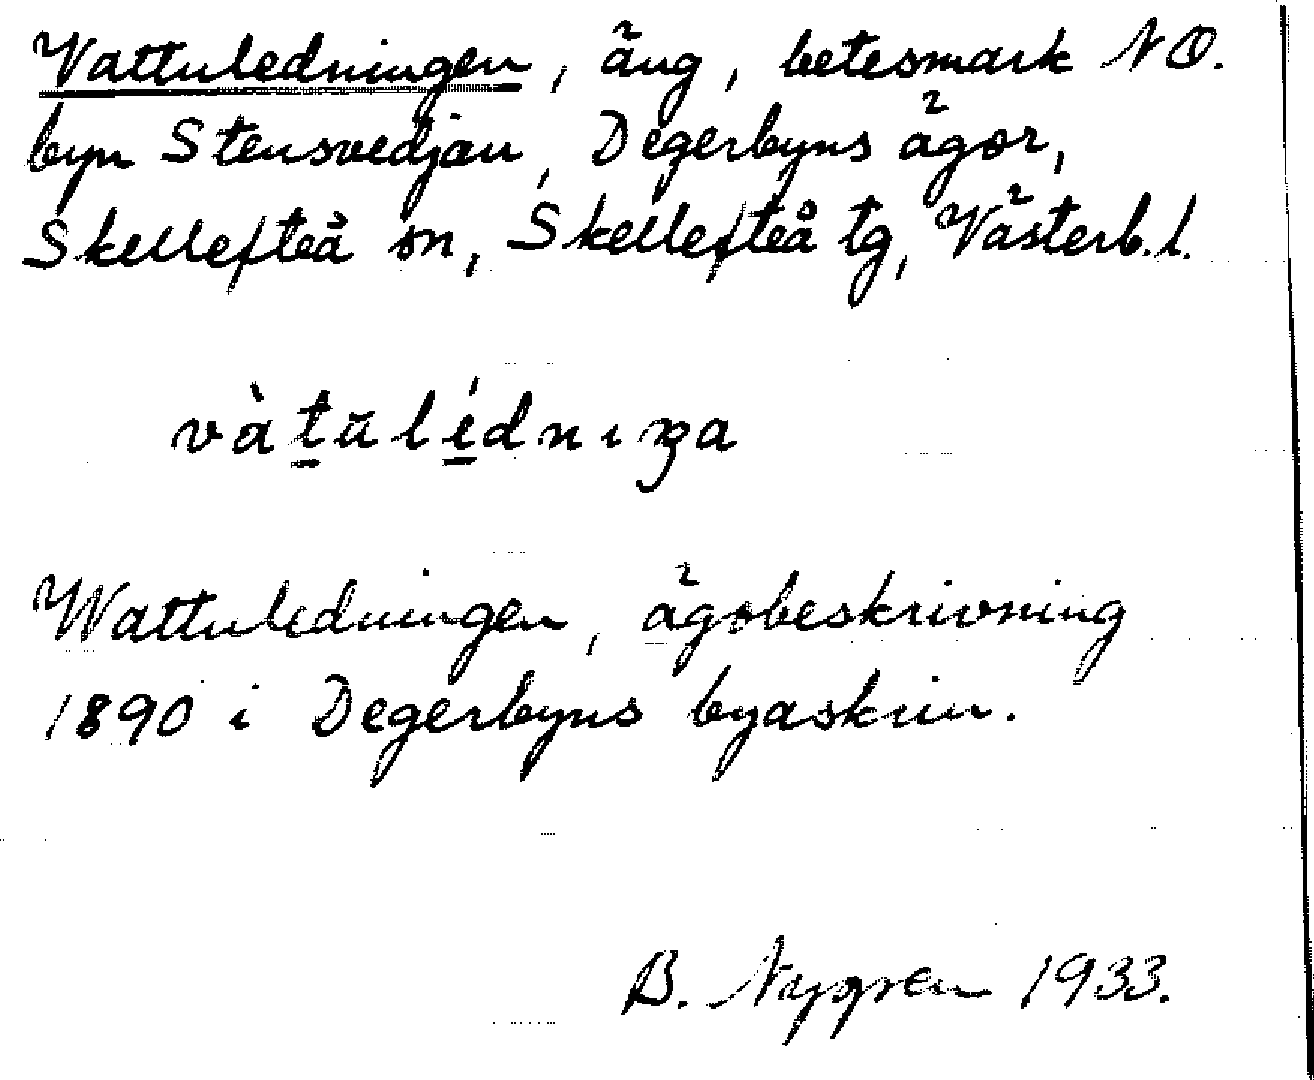 Vattuledningen, äng, betesmark NO.
byn Stensvedjan, Degerbyns ägor,
Skellefteå sn, Skellefteå tg, Västerb.l.
vàtulédnıŋa
Wattuledningen, ägobeskrivning
1890 i Degerbyns byaskrin.
B. Nygren 1933.